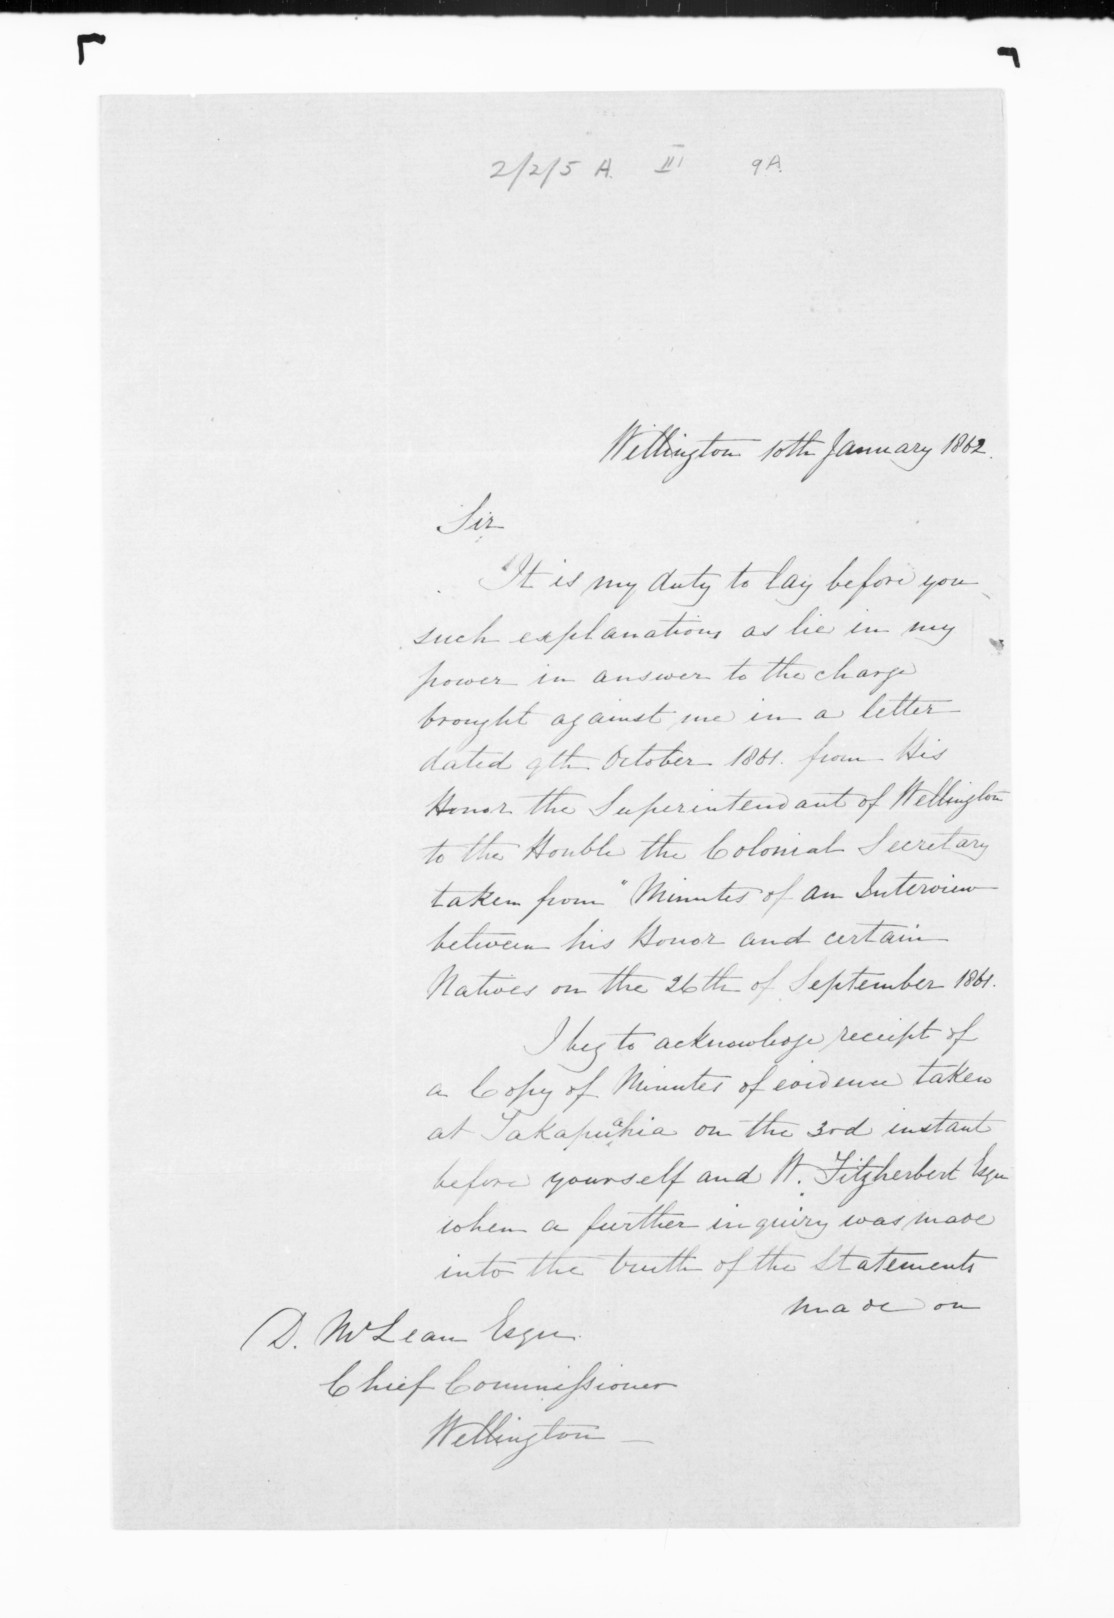 2/2/5 A. III 9A.
Wellington 10th January 1862.
Sir
It is my duty to lay before you
such explanations as lie in my
power in answer to the charge
brought against me in a letter
dated 9th October 1861. from His
Honor the Superintendant of Wellington
to the Honble the Colonial Secretary
taken from "Minutes of an Interview
between his Honor and certain
Natives on the 26th of September 1861.
I beg to acknowledge receipt of
a Copy of Minutes of evidence taken
at Takapuahia on the 3rd instant
before yourself and W. Fitzherbert Esqre
when a further inquiry was made
into the truth of the Statements
made on
D. McLean Esqre.
Chief Commissioner
Wellington —